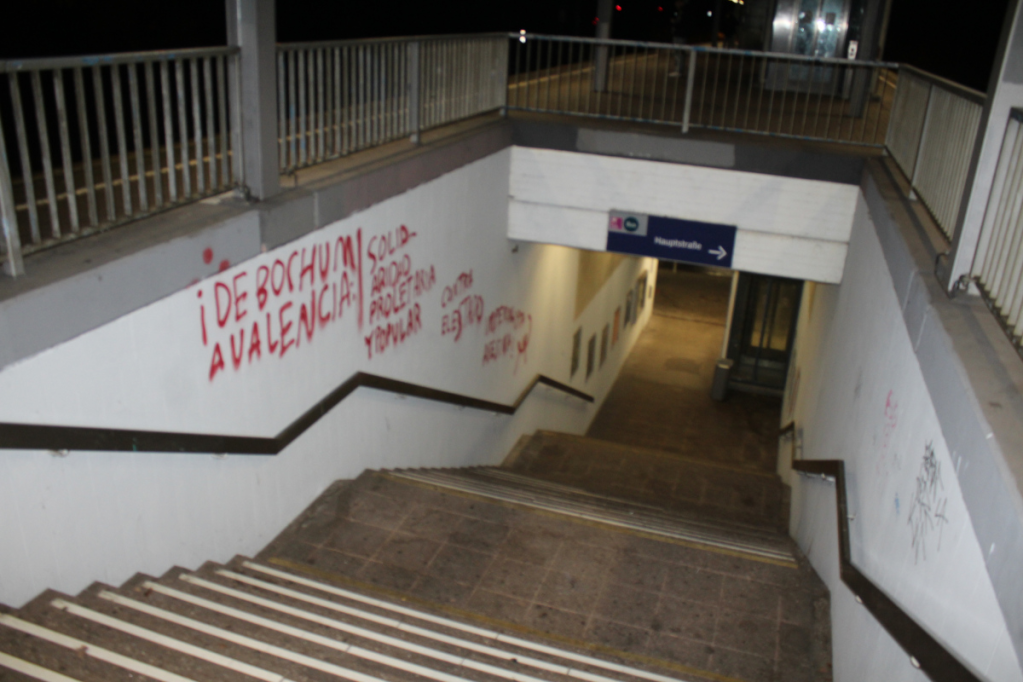 ¡DE BOCHUM
A VALENCIA:
SOLID-
ARIDAD
PROLETARIA
Y POPULAR
CONTRA
EL ESTADO
Hauptstraße